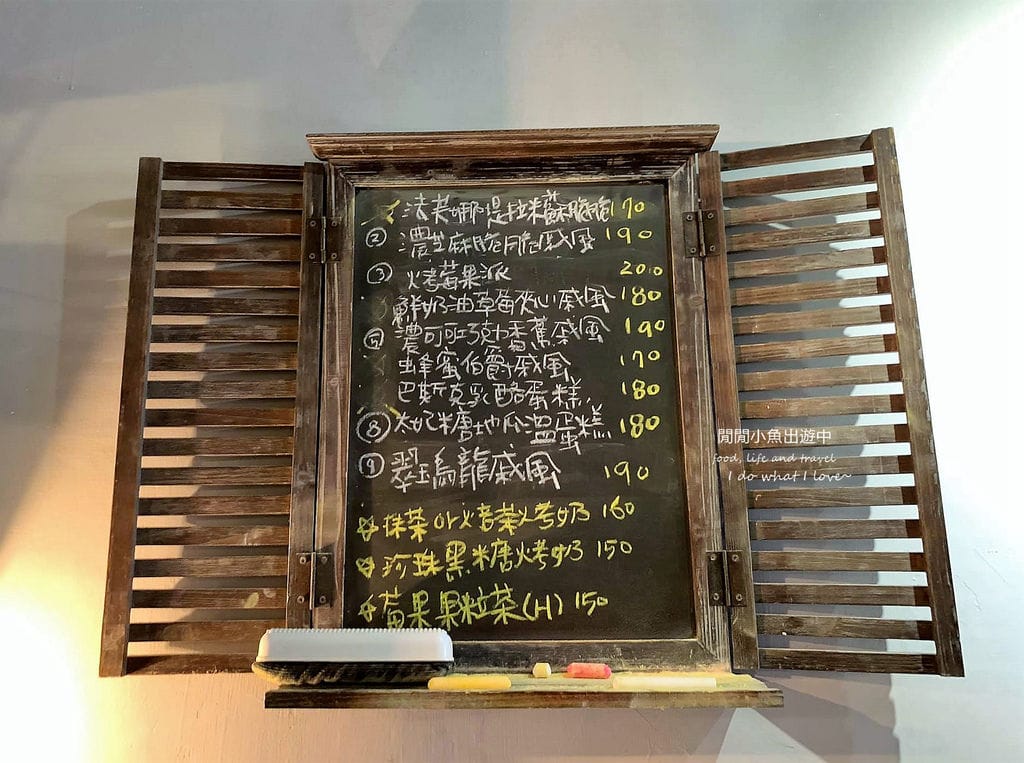 法芙娜提拉米蘇脆脆 170
② 濃芝麻脆脆戚風 190
③ 烤莓果派 200
鮮奶油草莓夾心戚風 180
⑤ 濃可可巧克力香蕉戚風 190
蜂蜜伯爵戚風 170
巴斯克乳酪蛋糕 180
⑧ 太妃糖地瓜溫蛋糕 180
⑨ 翠玉烏龍戚風 190
抹茶 or 焙茶烤奶 160
珍珠黑糖烤奶 150
莓果果粒茶(H) 150
閒閒小魚出遊中
food, life and travel
I do what I love~